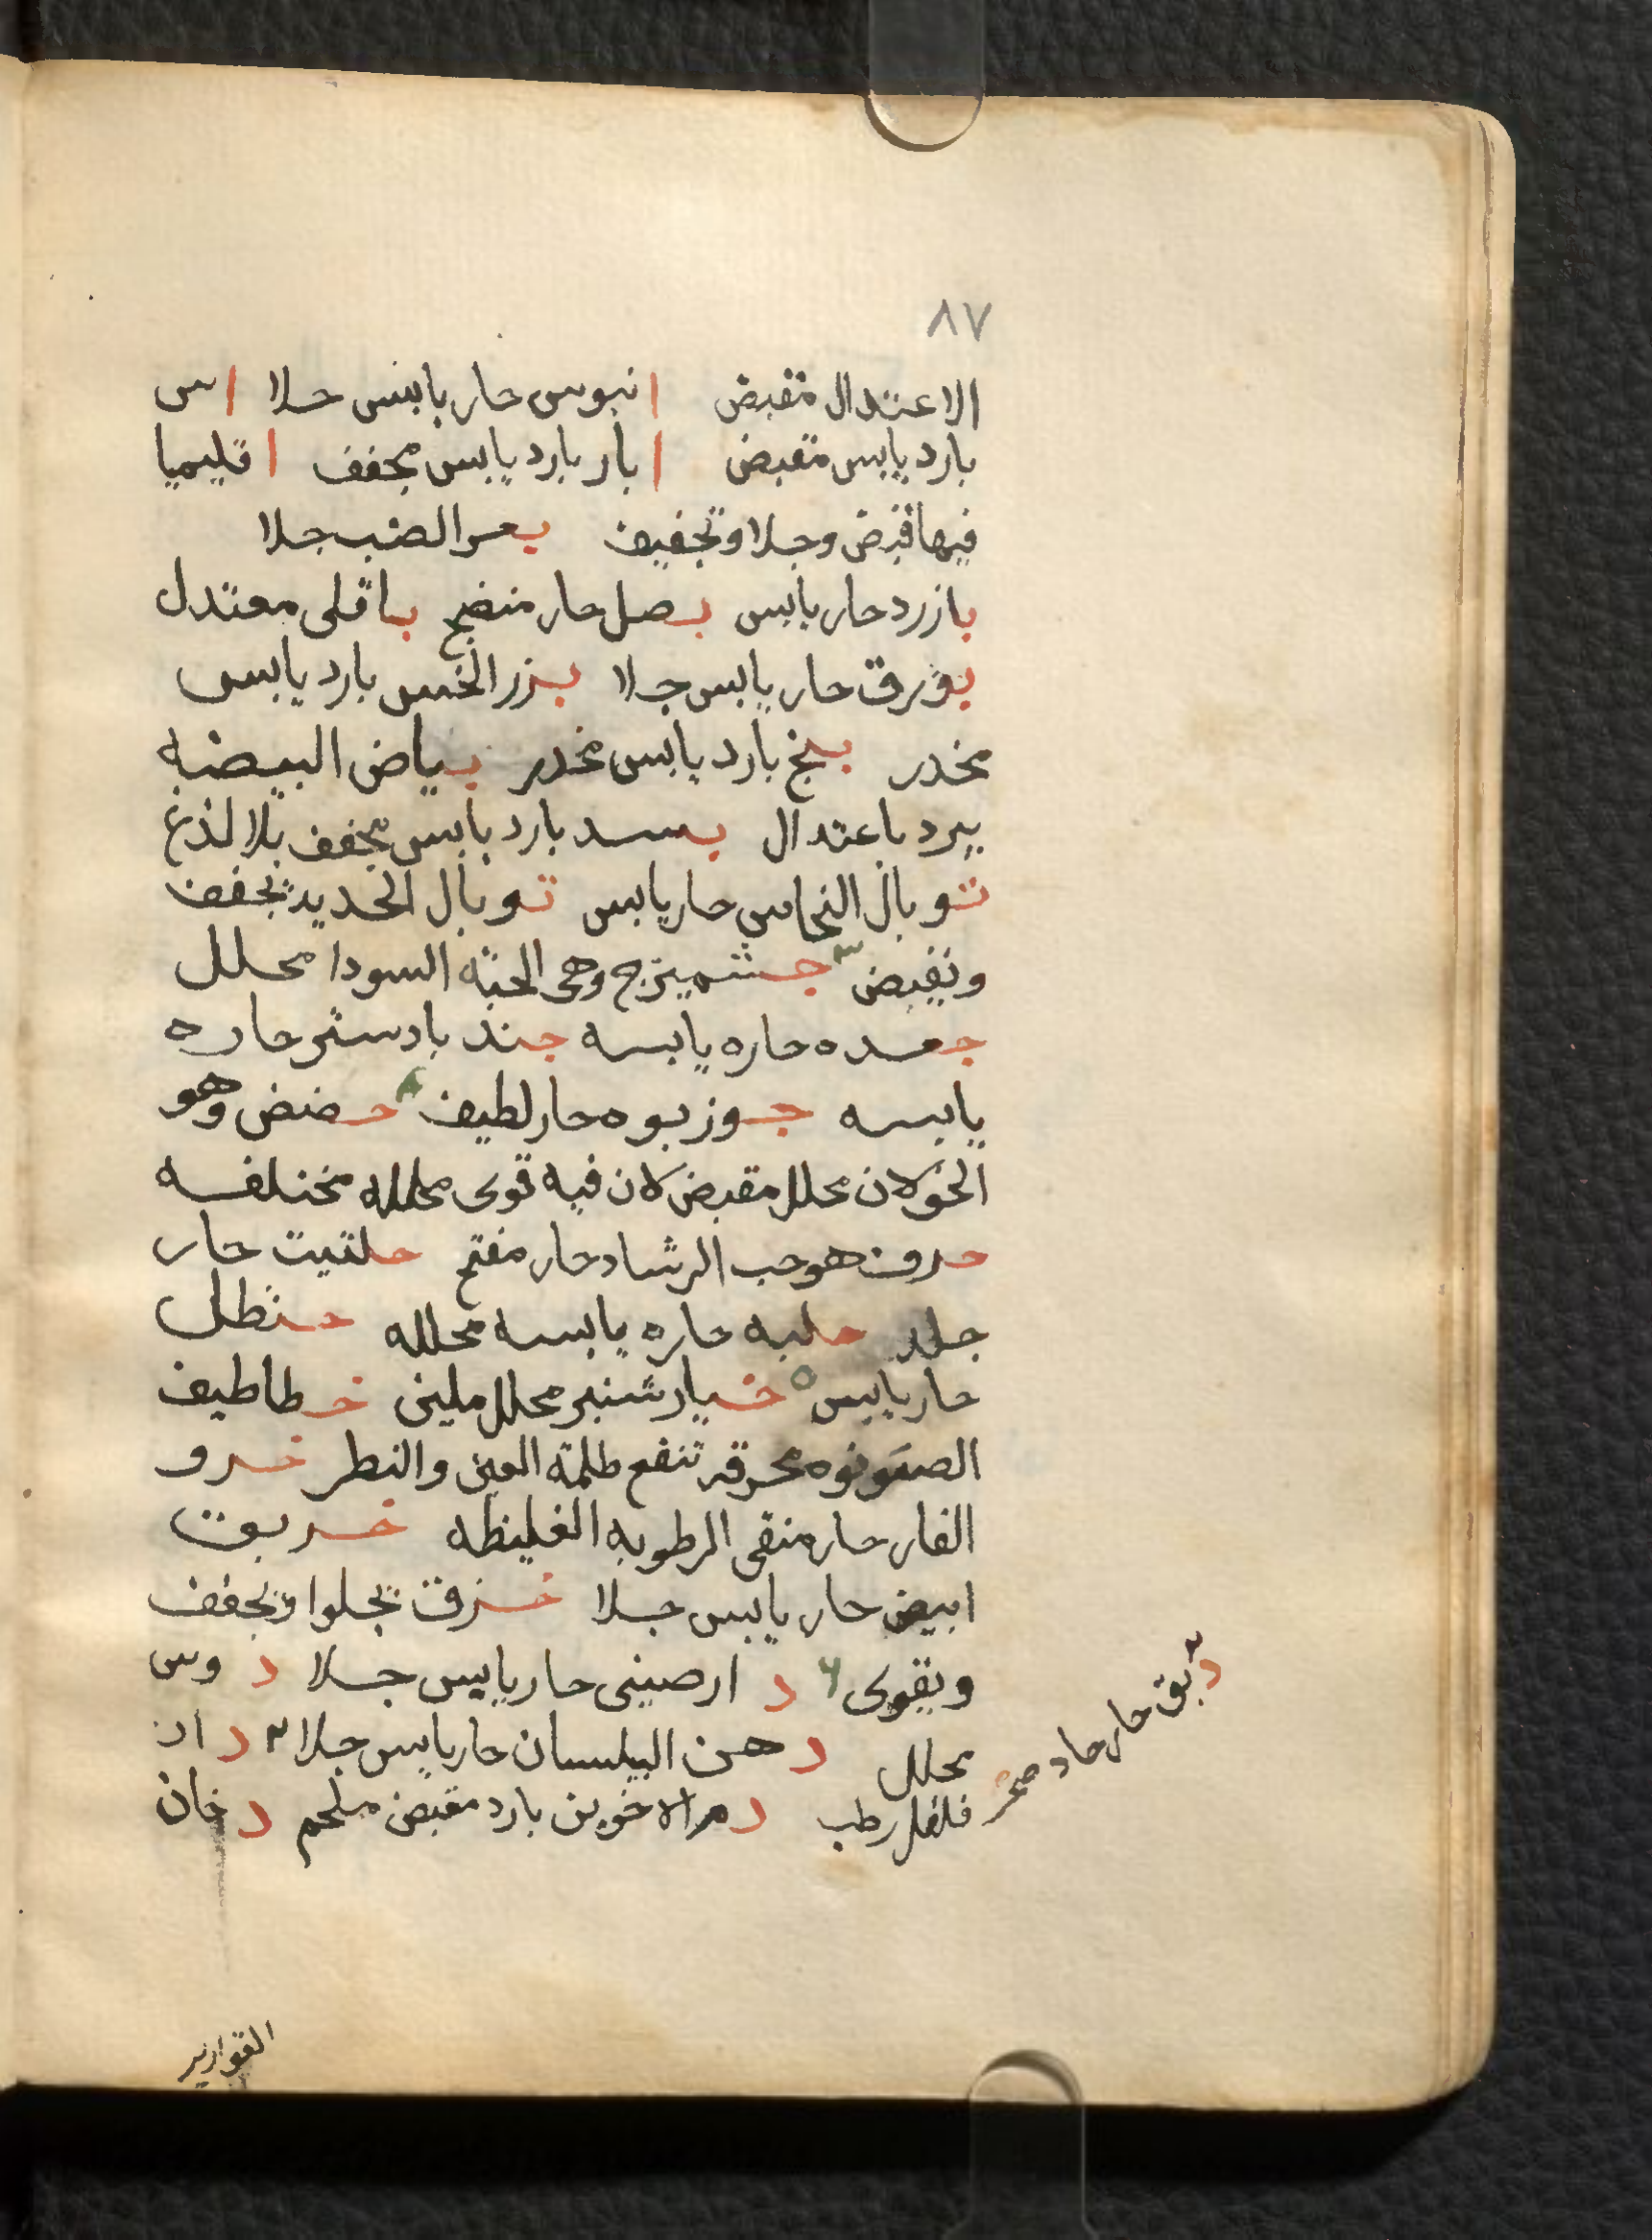 ٨٧
الاعتدال مقبض ابنوس حار يابس جلا اس
بارد يابس مقبض ابار بارد يابس مجفف اقليميا
فيها قبض وجلا وتجفيف بعر الضب جلا
بازرد حار يابس بصل حار منضج باقلى معتدل
بورق حار يابس جلا بزر الخس بارد يابس
مخدر بنج بارد يابس مخدر بياض البيضه
يبرد باعتدال بسد بارد يابس مجفف بلا لذع
توبال النحاس حار يابس توبال الحديد تجفف
وتقبض ٣ جشميزج وهى الحبة السودا محلل
جعده حاره يابسه جندبادستر حاره
يابسه جوزبوه حار لطيف ٤ حضض وهو
الخولان محلل مقبض لان فيه قوى محلله مختلفه
حرف هو حب الرشاد حار مفتح حلتيت حار
حلبه حاره يابسه محلله حنظل
حار يابس ٥ خيارشنبر محلل ملين خطاطيف
الصنونوه محرقه تنفع ظلمة العين والنظر خرو
الفار حار منقى الرطوبه الغليظه خربق
ابيض حار يابس جلا خزف تجلوا وتجفف
ويقوى ۶ دارصينى حار يابس جلا دوس
محلل دهن البلسان حار يابس جلا ٣ دار
فلفل رطب دم الاخوين بارد مقبض ملحم دخان
٣ دبق حار حاد
القوارير